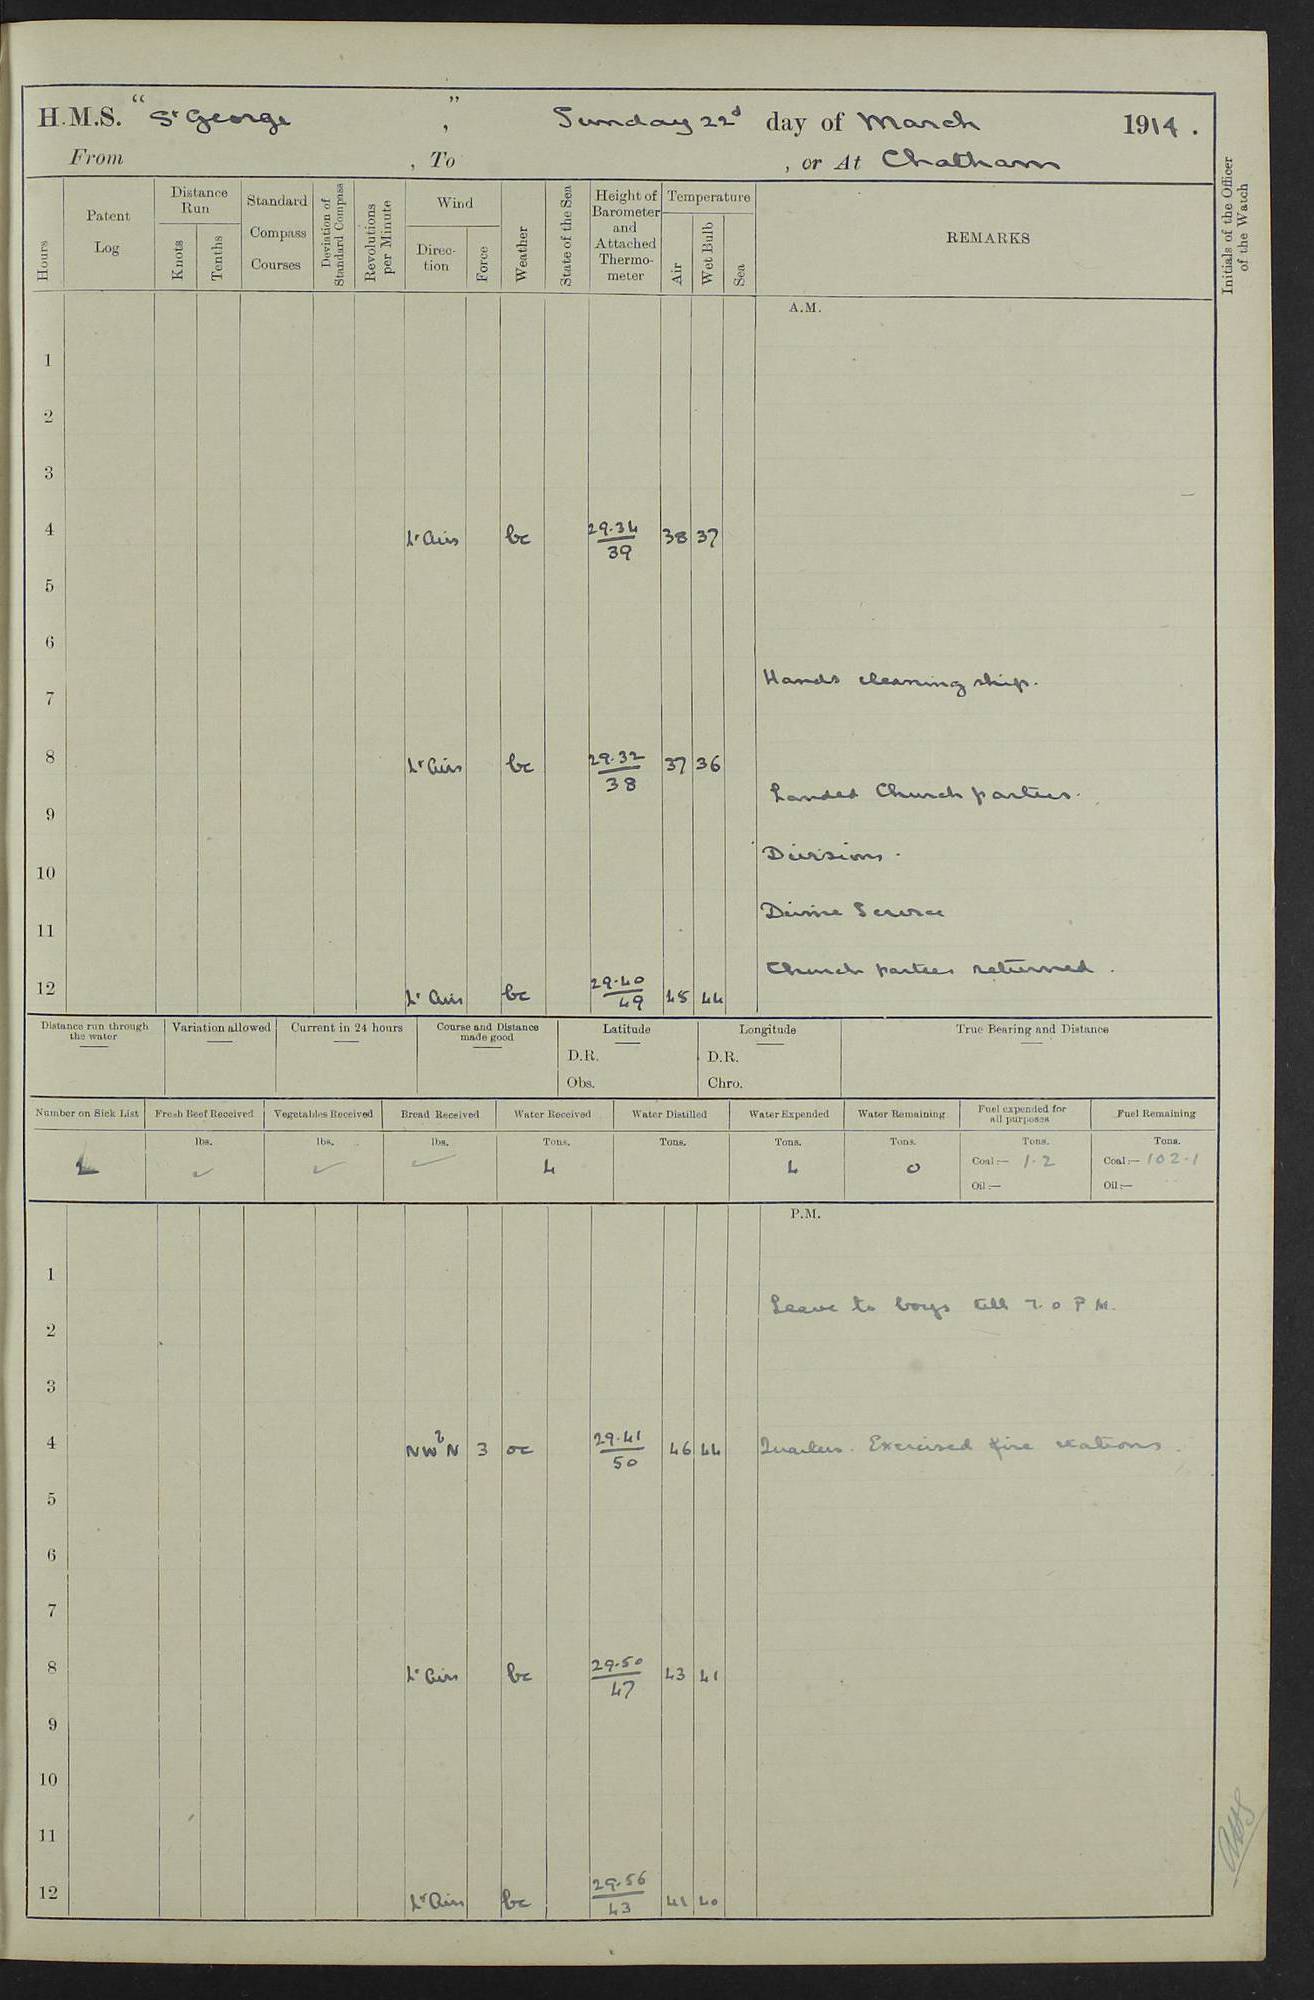 H.M.S. "St George", Sunday 22d day of March 1914.
From , To , or At Chatham
Hours
Patent Log
Distance Run
Knots
Tenths
Standard Compass Courses
Deviation of Standard Compass
Revolutions per Minute
Wind
Direction
Force
Weather
State of the Sea
Height of Barometer and Attached Thermometer
Temperature
Air
Wet Bulb
Sea
REMARKS
Initials of the Officer of the Watch
A.M.
1
2
3
4 Lt Airs bc 29.34/39 38 37
5
6
Hands cleaning ship.
7
8 Lt Airs bc 29.32/38 37 36
Landed Church parties.
9
Divisions.
10
Divine Service
11
Church parties returned.
12 Lt Airs bc 29.40/49 45 44
Distance run through the water
Variation allowed
Current in 24 hours
Course and Distance made good
Latitude
D.R.
Obs.
Longitude
D.R.
Chro.
True Bearing and Distance
Number on Sick List
Fresh Beef Received
Vegetables Received
Bread Received
Water Received
Water Distilled
Water Expended
Water Remaining
Fuel expended for all purposes
Fuel Remaining
lbs. lbs. lbs. Tons. Tons. Tons. Tons. Tons. Tons.
✓ ✓ ✓ 4 4 0 Coal:— 1.2 Coal:— 102.1
Oil:— Oil:—
P.M.
1
Leave to boys till 7.0 P.M.
2
3
4 NW b N 3 oc 29.41/50 46 44 Quarters. Exercised fire stations.
5
6
7
8 Lt Airs bc 29.50/47 43 41
9
10
11
12 Lt Airs bc 29.56/43 41 40